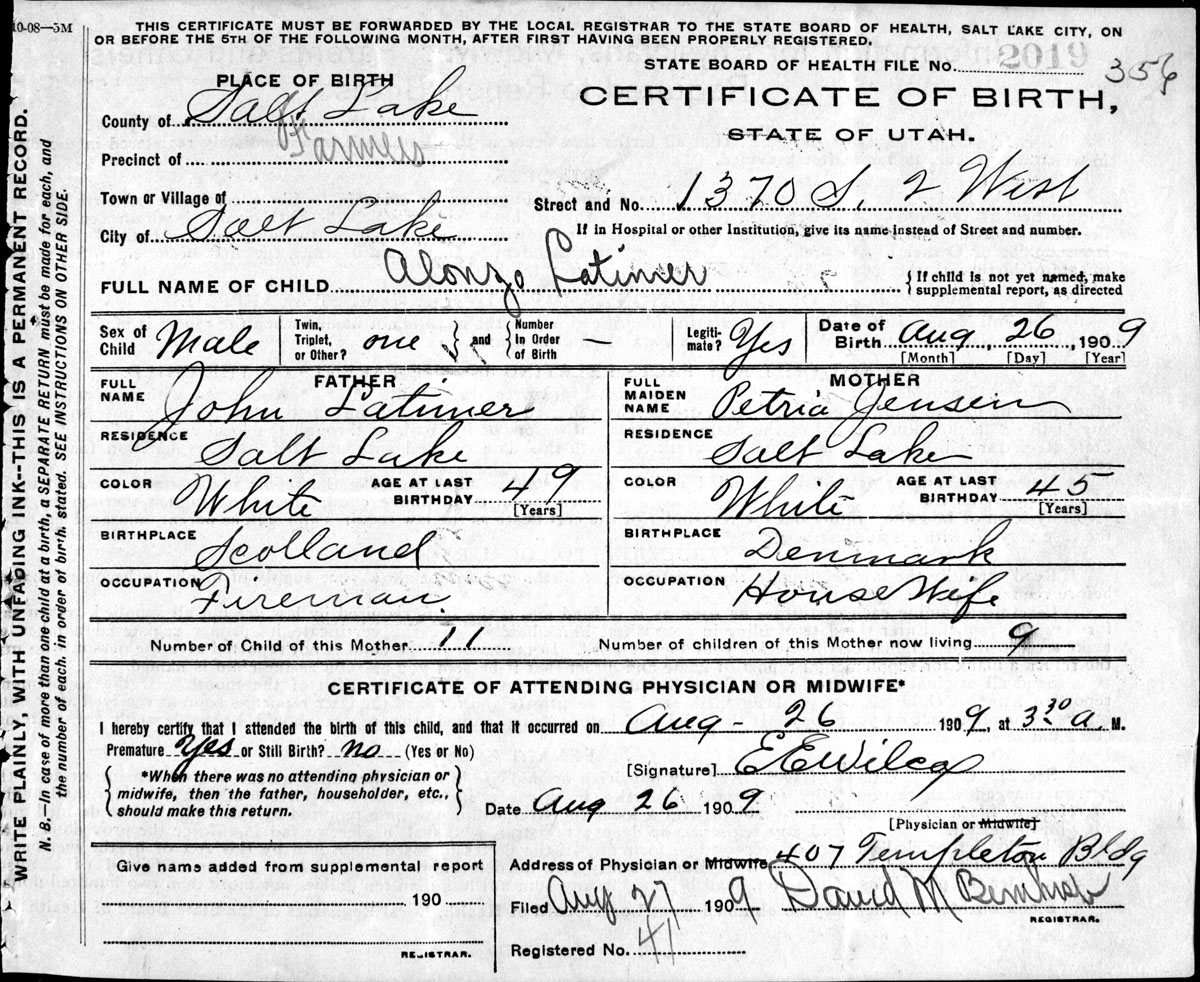 10-08—5M
THIS CERTIFICATE MUST BE FORWARDED BY THE LOCAL REGISTRAR TO THE STATE BOARD OF HEALTH, SALT LAKE CITY, ON
OR BEFORE THE 5TH OF THE FOLLOWING MONTH, AFTER FIRST HAVING BEEN PROPERLY REGISTERED.
STATE BOARD OF HEALTH FILE NO. 2019 356
PLACE OF BIRTH
CERTIFICATE OF BIRTH,
STATE OF UTAH.
County of Salt Lake
Precinct of Farmers
Town or Village of
Street and No. 1370 S. 2 West
City of Salt Lake
If in Hospital or other Institution, give its name instead of Street and number.
FULL NAME OF CHILD Alonzo Latimer
{If child is not yet named, make
supplemental report, as directed
Sex of Child Male
Twin, Triplet, or Other? one } and { Number In Order of Birth —
Legitimate? Yes
Date of Birth Aug, 26, 1909
[Month] [Day] [Year]
FATHER
FULL NAME John Latimer
RESIDENCE Salt Lake
COLOR White AGE AT LAST BIRTHDAY 49 [Years]
BIRTHPLACE Scotland
OCCUPATION Fireman.
MOTHER
FULL MAIDEN NAME Petria Jensen
RESIDENCE Salt Lake
COLOR White AGE AT LAST BIRTHDAY 45 [Years]
BIRTHPLACE Denmark
OCCUPATION House Wife
Number of Child of this Mother 11 Number of children of this Mother now living 9
CERTIFICATE OF ATTENDING PHYSICIAN OR MIDWIFE*
I hereby certify that I attended the birth of this child, and that it occurred on Aug - 26 1909, at 3 30 a M.
Premature yes or Still Birth? no (Yes or No)
{ *When there was no attending physician or
midwife, then the father, householder, etc.,
should make this return. }
[Signature] E E Wilcox
Date Aug 26 1909
[Physician or Midwife]
Give name added from supplemental report
190
REGISTRAR.
Address of Physician or Midwife 407 Templeton Bldg
Filed Aug 27 1909 David M
REGISTRAR.
Registered No. 41
WRITE PLAINLY, WITH UNFADING INK--THIS IS A PERMANENT RECORD.
N. B.—In case of more than one child at a birth, a SEPARATE RETURN must be made for each, and
the number of each, in order of birth, stated. SEE INSTRUCTIONS ON OTHER SIDE.